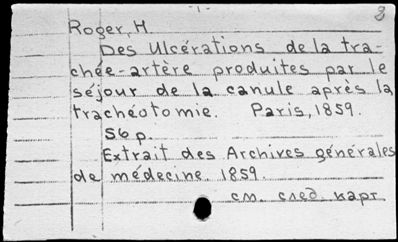 - 1 -
Roger, H.
Des Ulcérations de la tra-
chée-artère produites par le
séjour de la canule après la
trachéotomie. Paris, 1859.
56 p.
Extrait des Archives générales
de médecine 1859.
см. след. карт.